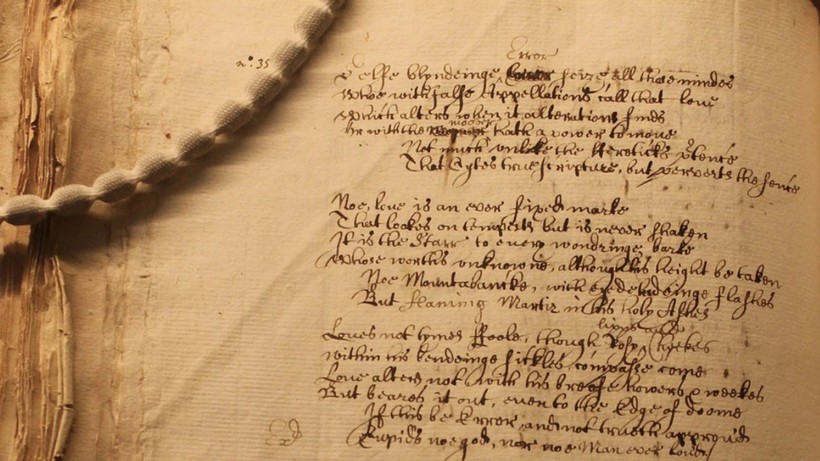 n.° 35
Error
Selfe blyndeinge seize all those mindes
Whoe with false Appellations call that love
Which alters when it alterations finds
mover
Or with the hath a power to move
Not much unlike the Hereticks ptence
That Cytes true scripture, but perverts the sence
Noe, love is an ever fixed marke
That lookes on tempests but is never shaken
It is the Starr to every wondringe barke
Whose worths unknowne, although his height be taken
Noe Mountabancke, with eye deludeinge flashes
But flameing Martir in his holy Ashes
lipps and
Loves not tymes ffoole, though Rosy Cheekes
within his bendeinge sickles compasse come
Love alters not with his breefe howers & weekes
But beares it out, even to the Edge of doome
If this be Error and not truth approvd
Cupids noe god, nor noe Man ever lovd